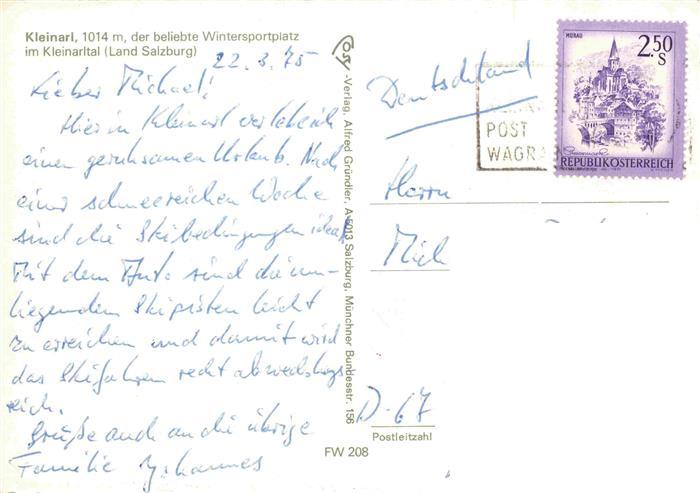 Kleinarl, 1014 m, der beliebte Wintersportplatz
im Kleinarltal (Land Salzburg)
22.3.75
Lieber Michael!
Hier in Kleinarl verlebe ich
einen geruhsamen Urlaub. Nach
einer schneereichen Woche
sind die Skibedingungen ideal.
Mit dem Auto sind die um-
liegenden Skipisten leicht
zu erreichen und damit wird
das Skifahren recht abwechslungs
reich.
Grüße auch an die übrige
Familie Johannes
-Verlag, Alfred Gründler, A-5013 Salzburg, Münchner Bundesstr. 156
FW 208
Deutschland
POST
WAGRA
MURAU
2.50
S
REPUBLIK ÖSTERREICH
Herrn
Mich
D-67
Postleitzahl